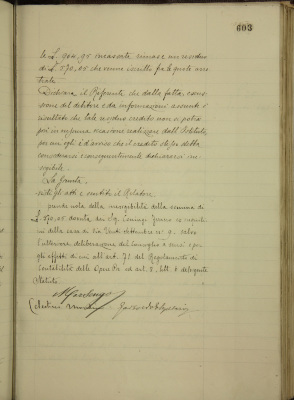 603
le £. 904,95 incassate, rimase un residuo
di £. 570,05 che venne iscritto fra le quote arre
trate
Dichiara, il Referente che dalla fatta, escus
sione del debitore e da informazioni assunte è
risultato che tale residuo credito non si potrà
più in nessuna occasione realizzare dall'Istituto,
per cui egli è d'avviso che il credito stesso debba
considerarsi conseguentemente dichiararsi ine
sigibile.
La Giunta,
visti gli atti e sentito il Relatore
prende nota della inesigibilità della somma di
£ 570,05 dovuta dal Sig. inquili
no della casa di Via Venti Settembre n° 9, salvo
l'ulteriore deliberazione del Consiglio a sensi e per
gli effetti di cui all'art. 71 del Regolamento di
Contabilità delle Opere Pie ed art. 8, lett. del vigente
Statuto.